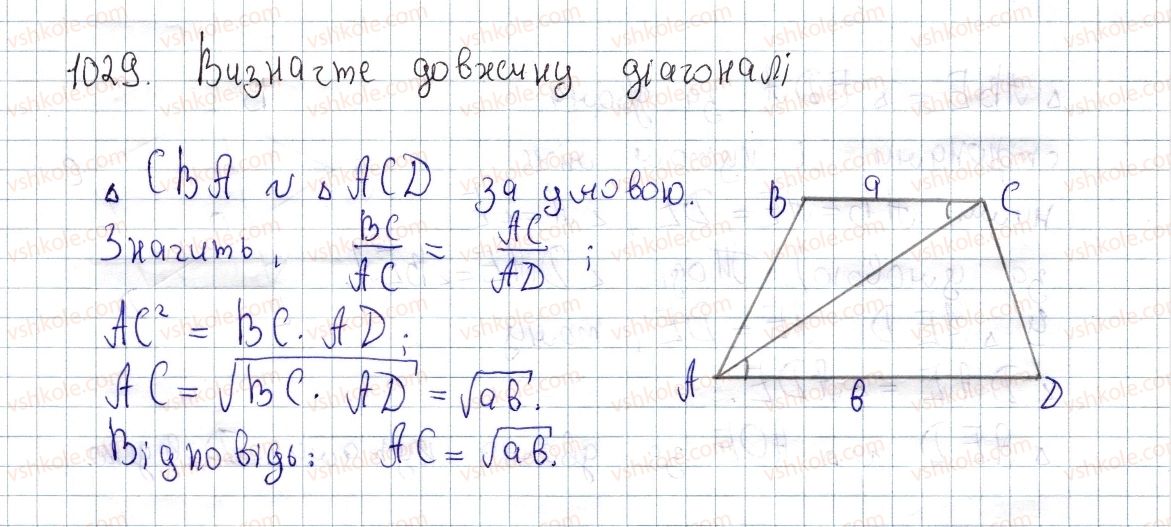 1029. Визначте довжину діагоналі
△ CBA ~ △ ACD за умовою.
Значить, BC/AC = AC/AD ;
AC² = BC · AD ;
AC = √(BC · AD) = √ab.
Відповідь: AC = √ab.
B a C
A в D
vshkole.com